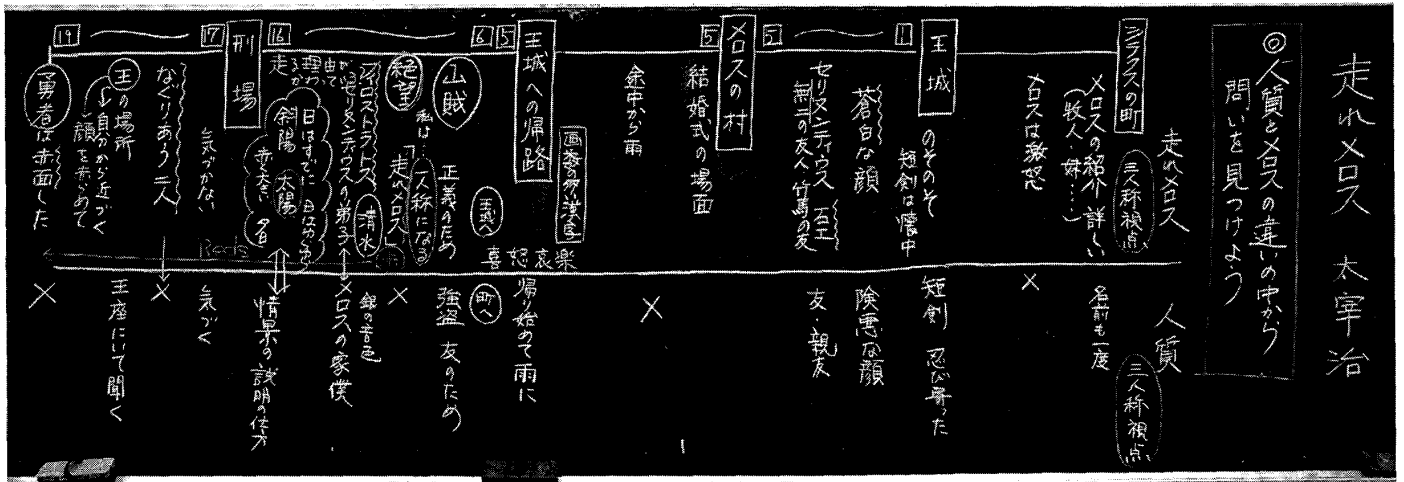 走れメロス 太宰治
◎人質とメロスの違いの中から
問いを見つけよう
走れメロス
三人称視点
人質
三人称視点
シラクスの町
メロスの紹介 詳しい
(牧人・妹…)
名前も一度
メロスは激怒
×
1
王城
のそのそ
短剣は懐中
短剣 忍び寄った
蒼白な顔
険悪な顔
セリヌンティウス 石工
無二の友人 竹馬の友
友・親友
5
メロスの村
5
結婚式の場面
途中から雨
×
画数の多い漢字
喜怒哀楽
王城への帰路
帰り始めて雨に
5
6
王城へ
町へ
山賊
正義のため
強盗 友のため
絶望
私は…一人称になる
走れメロス
×
清水
銀の音色
フィロストラトス
がセリヌンティウスの弟子
メロスの家僕
走る理由
16
日はすでに
斜陽 太陽
赤く大きい 夕日
情景の説明の仕方
刑場
17
気づかない
気づく
なぐりあう二人
×
王の場所
自分から近づく
顔を赤らめて
王座にいて聞く
19
勇者は赤面した
×